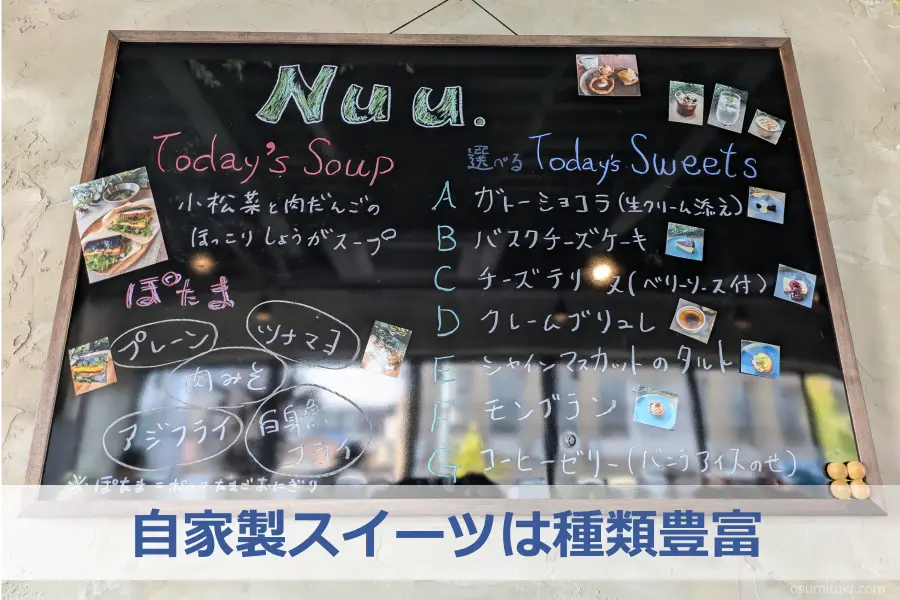 Nuu.
Today's Soup
小松菜と肉だんごの
ほっこりしょうがスープ
ぽたま
プレーン
ツナマヨ
肉みそ
アジフライ
白身魚
フライ
※ぽたま=ポークたまごおにぎり
選べる Today's Sweets
A ガトーショコラ(生クリーム添え)
B バスクチーズケーキ
C チーズテリーヌ(ベリーソース付)
D クレームブリュレ
E シャインマスカットのタルト
F モンブラン
G コーヒーゼリー(バニラアイスのせ)
自家製スイーツは種類豊富
osumituki.com